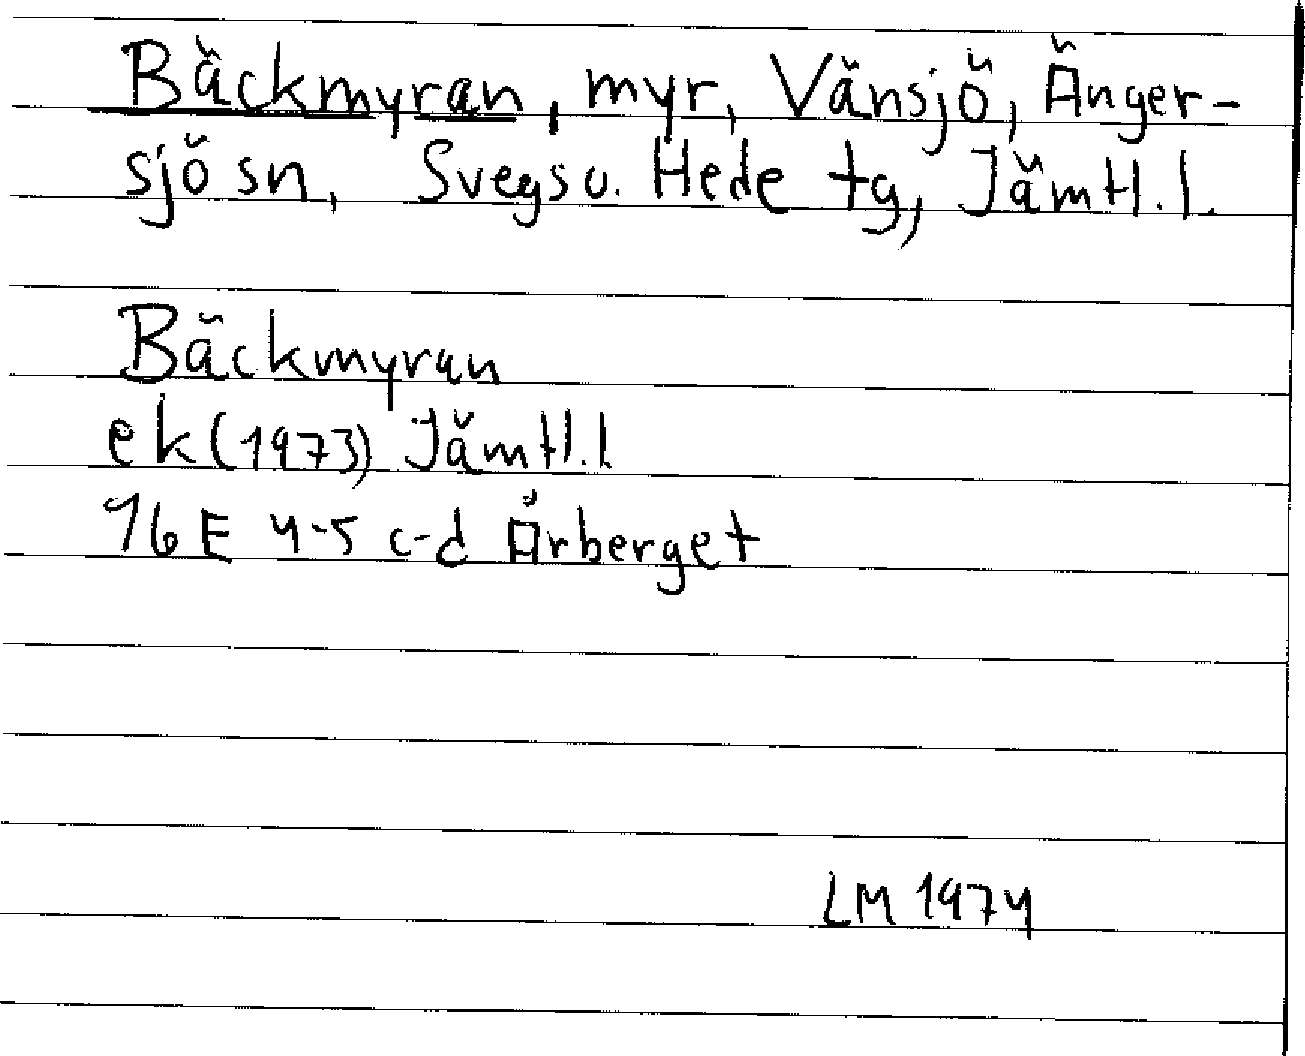 Bäckmyran, myr, Vänsjö, Änger-
sjö sn, Svegs o. Hede tg, Jämtl. l.
Bäckmyran
ek (1973) Jämtl. l
16 E 4-5 c-d Årberget
LM 1974